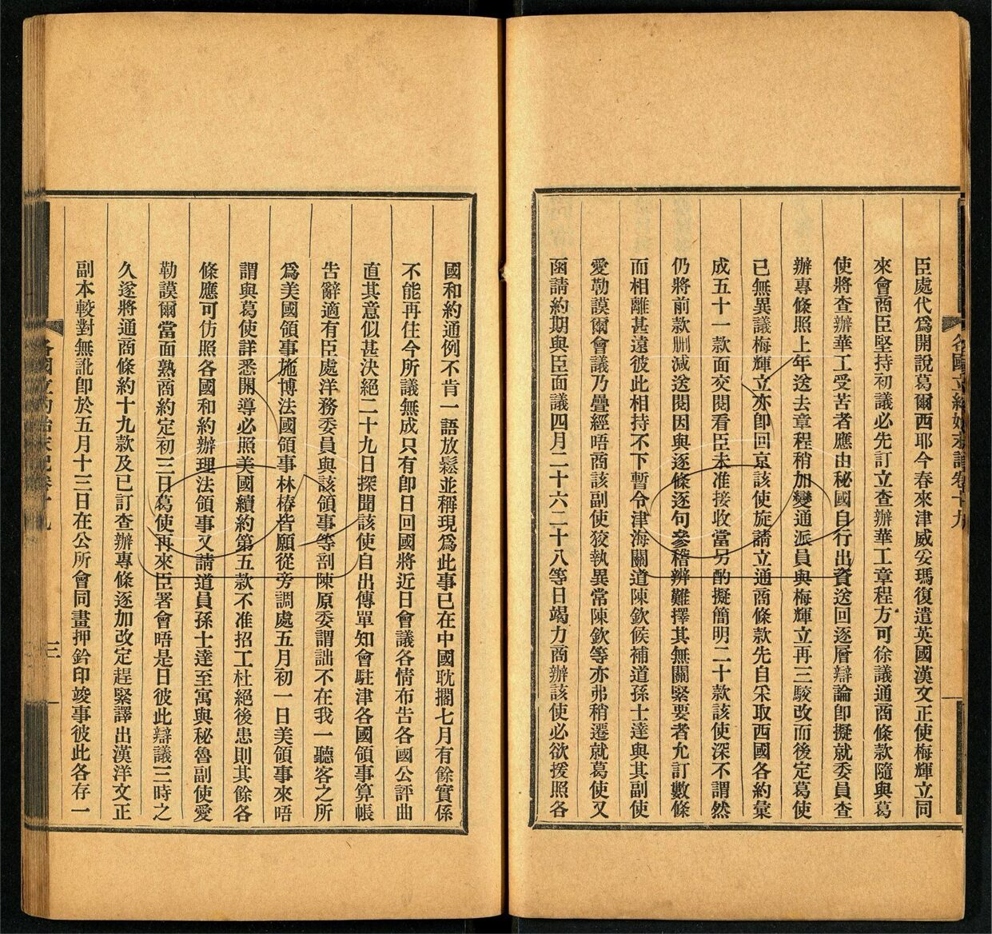 臣處代爲開說葛爾西耶今春來津威妥瑪復遣英國漢文正使梅輝立同
來會商臣堅持初議必先訂立查辦華工章程方可徐議通商條款隨與葛
使將查辦華工受苦者應由秘國自行出資送回逐層辯論卽擬就委員查
辦專條照上年送去章程稍加變通派員與梅輝立再三駮改而後定葛使
已無異議梅輝立亦卽回京該使旋請立通商條款先自采取西國各約彙
成五十一款面交閱看臣未准接收當另酌擬簡明二十款該使深不謂然
仍將前款删減送閱因與逐條逐句參稽辨難擇其無關緊要者允訂數條
而相離甚遠彼此相持不下暫令津海關道陳欽候補道孫士達與其副使
愛勒謨爾會議乃疊經晤商該副使狡執異常陳欽等亦弗稍遷就葛使又
函請約期與臣面議四月二十六二十八等日竭力商辦該使必欲援照各
國和約通例不肯一語放鬆並稱現爲此事已在中國耽擱七月有餘實係
不能再住今所議無成只有卽日回國將近日會議各情布吿各國公評曲
直其意似甚決絕二十九日探聞該使自出傳單知會駐津各國領事算帳
吿辭適有臣處洋務委員與該領事等剖陳原委謂詘不在我一聽客之所
爲美國領事施博法國領事林椿皆願從旁調處五月初一日美領事來晤
謂與葛使詳悉開導必照美國續約第五款不准招工杜絕後患則其餘各
條應可仿照各國和約辦理法領事又請道員孫士達至寓與秘魯副使愛
勒謨爾當面熟商約定初三日葛使再來臣署會晤是日彼此辯議三時之
久遂將通商條約十九款及已訂查辦專條逐加改定趕緊譯出漢洋文正
副本較對無訛卽於五月十三日在公所會同畫押鈐印竣事彼此各存一
各國立約始末記卷十九
三